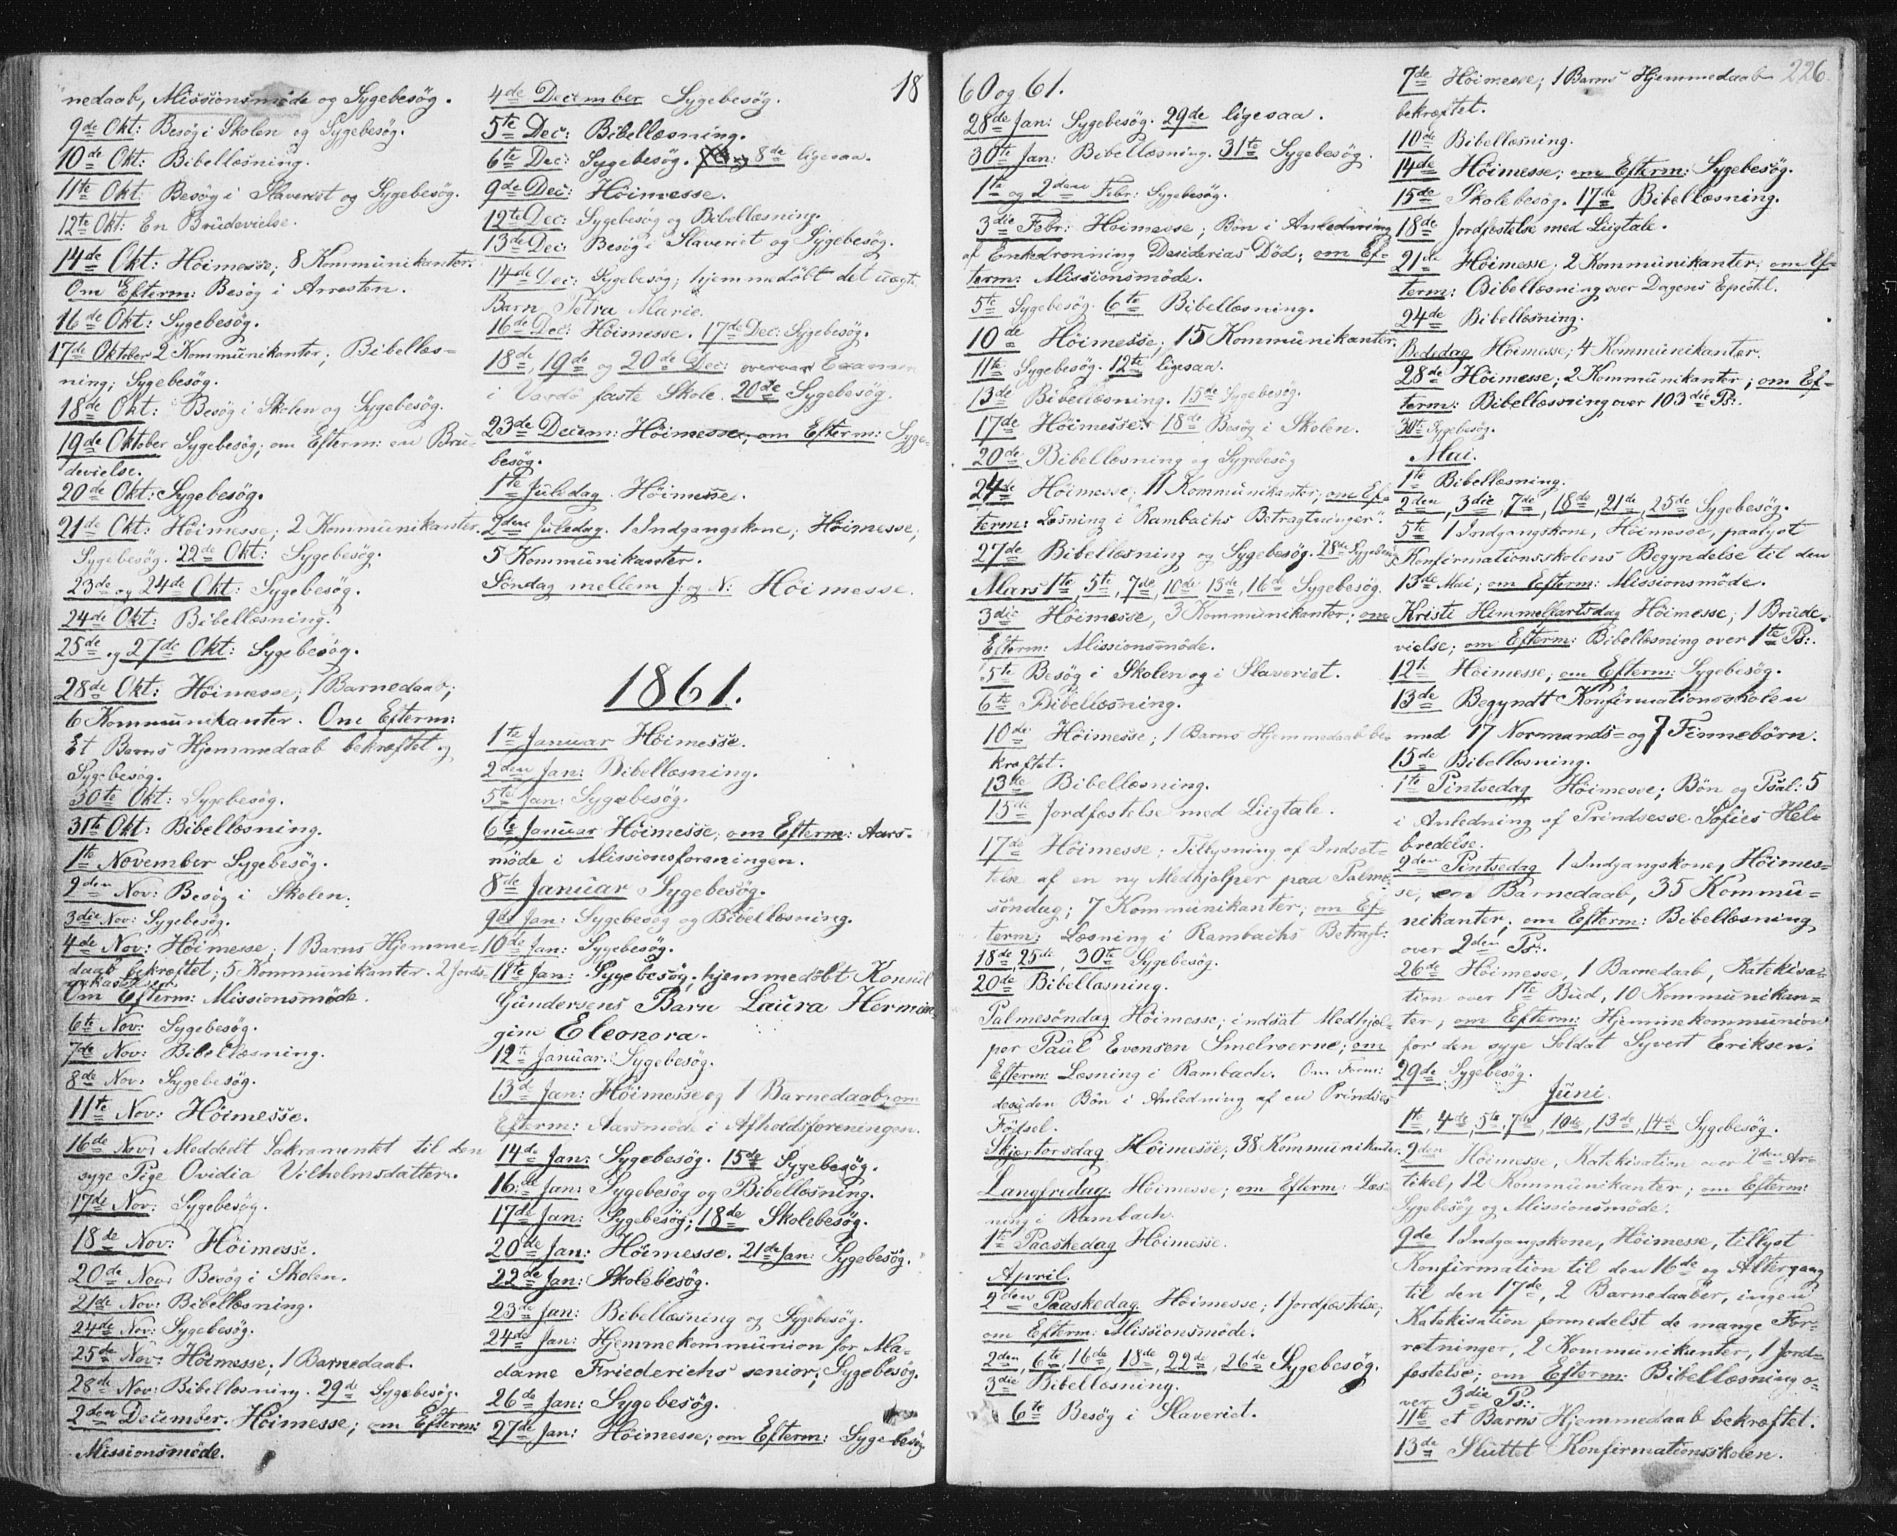 nedaab, Missionsmøde og Sygebesøg.
9de Okt: Besøg i Skolen og Sygebesøg.
10de Okt: Bibellæsning.
11te Okt. Besøg i Slaveriet og Sygebesøg.
12te Okt: En Brudevielse.
14de Okt: Höimesse; 8 Kommunikanter.
Om Efterm: Besøg i Arresten.
16de Okt: Sygebesøg.
17de Oktober 2 Kommunikanter; Bibellæs-
ning; Sygebesøg.
18de Okt: Besøg i Skolen og Sygebesøg.
19de Oktober Sygebesøg; om Efterm: en Bru-
devielse.
20de Okt: Sygebesøg.
21de Okt: Höimesse; 2 Kommunikanter.
Sygebesøg. 22de Okt: Sygebesøg.
23de og 24de Okt: Sygebesøg.
24de Okt: Bibellæsning.
25de og 27de Okt: Sygebesøg.
28de Okt: Höimesse; 1 Barnedaab;
6 Kommunikanter. Om Efterm:
Et Barns Hjemmedaab bekræftet og
Sygebesøg.
30te Okt: Sygebesøg.
31te Okt: Bibellæsning.
1te November Sygebesøg.
2den Nov: Besøg i Skolen.
3die Nov: Sygebesøg.
4de Nov: Höimesse; 1 Barns Hjemme-
daab bekræftet; 5 Kommunikanter. 2 Jords-
paakastelser.
Om Efterm: Missionsmøde.
6te Nov: Sygebesøg.
7de Nov: Bibellæsning.
8de Nov: Sygebesøg.
11te Nov: Höimesse.
16de Nov: Meddelt Sakramentet til den
syge Pige Ovidia Vilhelmsdatter.
17de Nov: Sygebesøg.
18de Nov: Höimesse.
20de Nov: Besøg i Skolen.
21de Nov: Bibellæsning.
24de Nov: Sygebesøg.
25de Nov: Höimesse; 1 Barnedaab.
28de Nov: Bibellæsning. 29de Sygebesøg.
2den December. Höimesse; om Efterm:
Missionsmøde.
18
4de December Sygebesøg.
5te Dec: Bibellæsning.
6te Dec: Sygebesøg. 8de ligesaa.
9de Dec: Höimesse.
12te Dec: Sygebesøg og Bibellæsning.
13de Dec: Besøg i Slaveriet og Sygebesøg.
14de Dec: Sygebesøg; hjemmedøbt det uægt.
Barn Petra Marie.
16de Dec: Höimesse. 17de Dec: Sygebesøg.
18de, 19de og 20de Dec: overvar Examen
i Vardö faste Skole. 20de Sygebesøg.
23de Decem: Höimesse; om Efterm: Syge-
besøg.
1te Juledag. Höimesse.
2den Juledag. 1 Indgangskone; Höimesse;
5 Kommunikanter.
Söndag mellem J: og N: Höimesse.
1861.
1te Januar Höimesse.
2den Jan: Bibellæsning.
5te Jan: Sygebesøg.
6te Januar Höimesse; om Efterm: Aars-
møde i Missionsforeningen.
8de Januar Sygebesøg.
9de Jan: Sygebesøg og Bibellæsning.
10de Jan: Sygebesøg.
11te Jan: Sygebesøg; hjemmedöbt Konsul
Gundersens Barn Laura Herman-
gine Eleonora.
12te Januar. Sygebesøg.
13de Jan: Höimesse og 1 Barnedaab; om
Efterm: Aarsmøde i Afholdsforeningen.
14de Jan: Sygebesøg. 15de Sygebesøg.
16de Jan: Sygebesøg og Bibellæsning.
17de Jan: Sygebesøg; 18de Skolebesøg.
20de Jan: Höimesse. 21de Jan: Sygebesøg.
22de Jan: Skolebesøg.
23de Jan: Bibellæsning og Sygebesøg.
24de Jan: Hjemmekommunion for Ma-
dame Friederichs senior; Sygebesøg.
26de Jan: Sygebesøg.
27de Jan: Höimesse; om Efterm: Sygebesøg
60 og 61.
28de Jan: Sygebesøg. 29de ligesaa.
30te Jan: Bibellæsning. 31te Sygebesøg.
1te og 2den Febr: Sygebesøg.
3die Febr: Höimesse; Bön i Anledning
af Enkedronning Desiderias Död; om Ef-
term: Missionsmöde.
5te Sygebesøg. 6te Bibellæsning.
10de Höimesse; 15 Kommunikanter.
11te Sygebesøg. 12te ligesaa.
13de Bibellæsning. 15de Sygebesøg.
17de Höimesse. 18de Besøg i Skolen.
20de Bibellæsning og Sygebesøg
24de Höimesse; 11 Kommunikanter; om Ef-
term: Læsning i "Rambachs Betragtninger".
27de Bibellæsning og Sygebesøg. 28de Sygebesøg
Mars 1te, 5te, 7de, 10de, 15de, 16de Sygebesøg.
3die Höimesse, 3 Kommunikanter; om
Efterm: Missionsmøde.
5te Besøg i Skolen og i Slaveriet.
6te Bibellæsning.
10de Höimesse; 1 Barns Hjemmedaab be-
kræftet.
13de Bibellæsning.
15de Jordfæstelse med Liigtale.
17de Höimesse; Tillysning af Indsæt-
telse af en ny Medhjælper paa Palme-
söndag; 7 Kommunikanter; om Ef-
term: Læsning i Rambachs Betragt:
18de, 25de, 30te Sygebesøg.
20de Bibellæsning.
Palmesöndag Höimesse; indsat Medhjæl-
per Paul Evensen Smelroerne; om
Efterm: Læsning i Rambach. Om Form:
desuden Bön i Anledning af en Prindses
Födsel.
Skjærtorsdag Höimesse; 38 Kommunikanter.
Langfredag. Höimesse; om Efterm: Læs-
ning i Rambach.
1te Paaskedag Höimesse.
April.
2den Paaskedag. Höimesse; 1 Jordfæstelse;
om Efterm: Missionsmøde.
2den, 6te, 16de, 18de, 22de, 26de Sygebesøg.
3die Bibellæsning.
6te Besøg i Slaveriet.
226.
7de Höimesse; 1 Barns Hjemmedaab
bekræftet.
10de Bibellæsning.
14de Höimesse; om Efterm: Sygebesøg.
15de Skolebesøg. 17de Bibellæsning.
18de Jordfæstelse med Liigtale.
21de Höimesse; 2 Kommunikanter; om Ef-
term: Bibellæsning over Dagens Epistel.
24de Bibellæsning.
Bededag Höimesse; 4 Kommunikanter.
28de Höimesse; 2 Kommunikanter; om Ef-
term: Bibellæsning over 103die Ps:.
30te Sygebesøg.
Mai.
1te Bibellæsning.
2den, 3die, 7de, 18de, 21de, 25de Sygebesøg.
5te 1 Indgangskone, Höimesse, paalyst
Konfirmationsskolens Begyndelse til den
13de Mai; om Efterm: Missionsmøde.
Kristi Himmelfartsdag Höimesse; 1 Brude-
vielse; om Efterm: Bibellæsning over 1te Ps:.
12te Höimesse; om Efterm: Sygebesøg.
13de Begyndt Konfirmationsskolen
med 17 Normands- og 7 Finnebörn.
15de Bibellæsning.
1te Pintsedag Höimesse; Bön og Psal: 5
i Anledning af Prindsesse Sofies Hel-
bredelse.
2den Pintsedag 1 Indgangskone, Höimes-
se, en Barnedaab, 35 Kommu-
nikanter; om Efterm: Bibellæsning
over 2den Ps:.
26de Höimesse, 1 Barnedaab, Katekisa-
tion over 1te Bud, 10 Kommunikan-
ter; om Efterm: Hjemmekommunion
for den syge Soldat Syvert Eriksen.
29de Sygebesøg.
Juni.
1te, 4de, 5te, 7de, 10de, 13de, 14de Sygebesøg.
2den Höimesse, Katekisation over 2den Ar-
tikel, 12 Kommunikanter; om Efterm:
Sygebesøg og Missionsmöde.
9de 1 Indgangskone, Höimesse, tillyst
Konfirmation til den 16de og Altergang
til den 17de, 2 Barnedaaber, ingen
Katekisation formedelst de mange For-
retninger, 2 Kommunikanter, 1 Jord-
fæstelse; om Efterm: Bibellæsning o-
ver 3die Ps:.
11te et Barns Hjemmedaab bekræftet.
13de Sluttet Konfirmationsskolen.